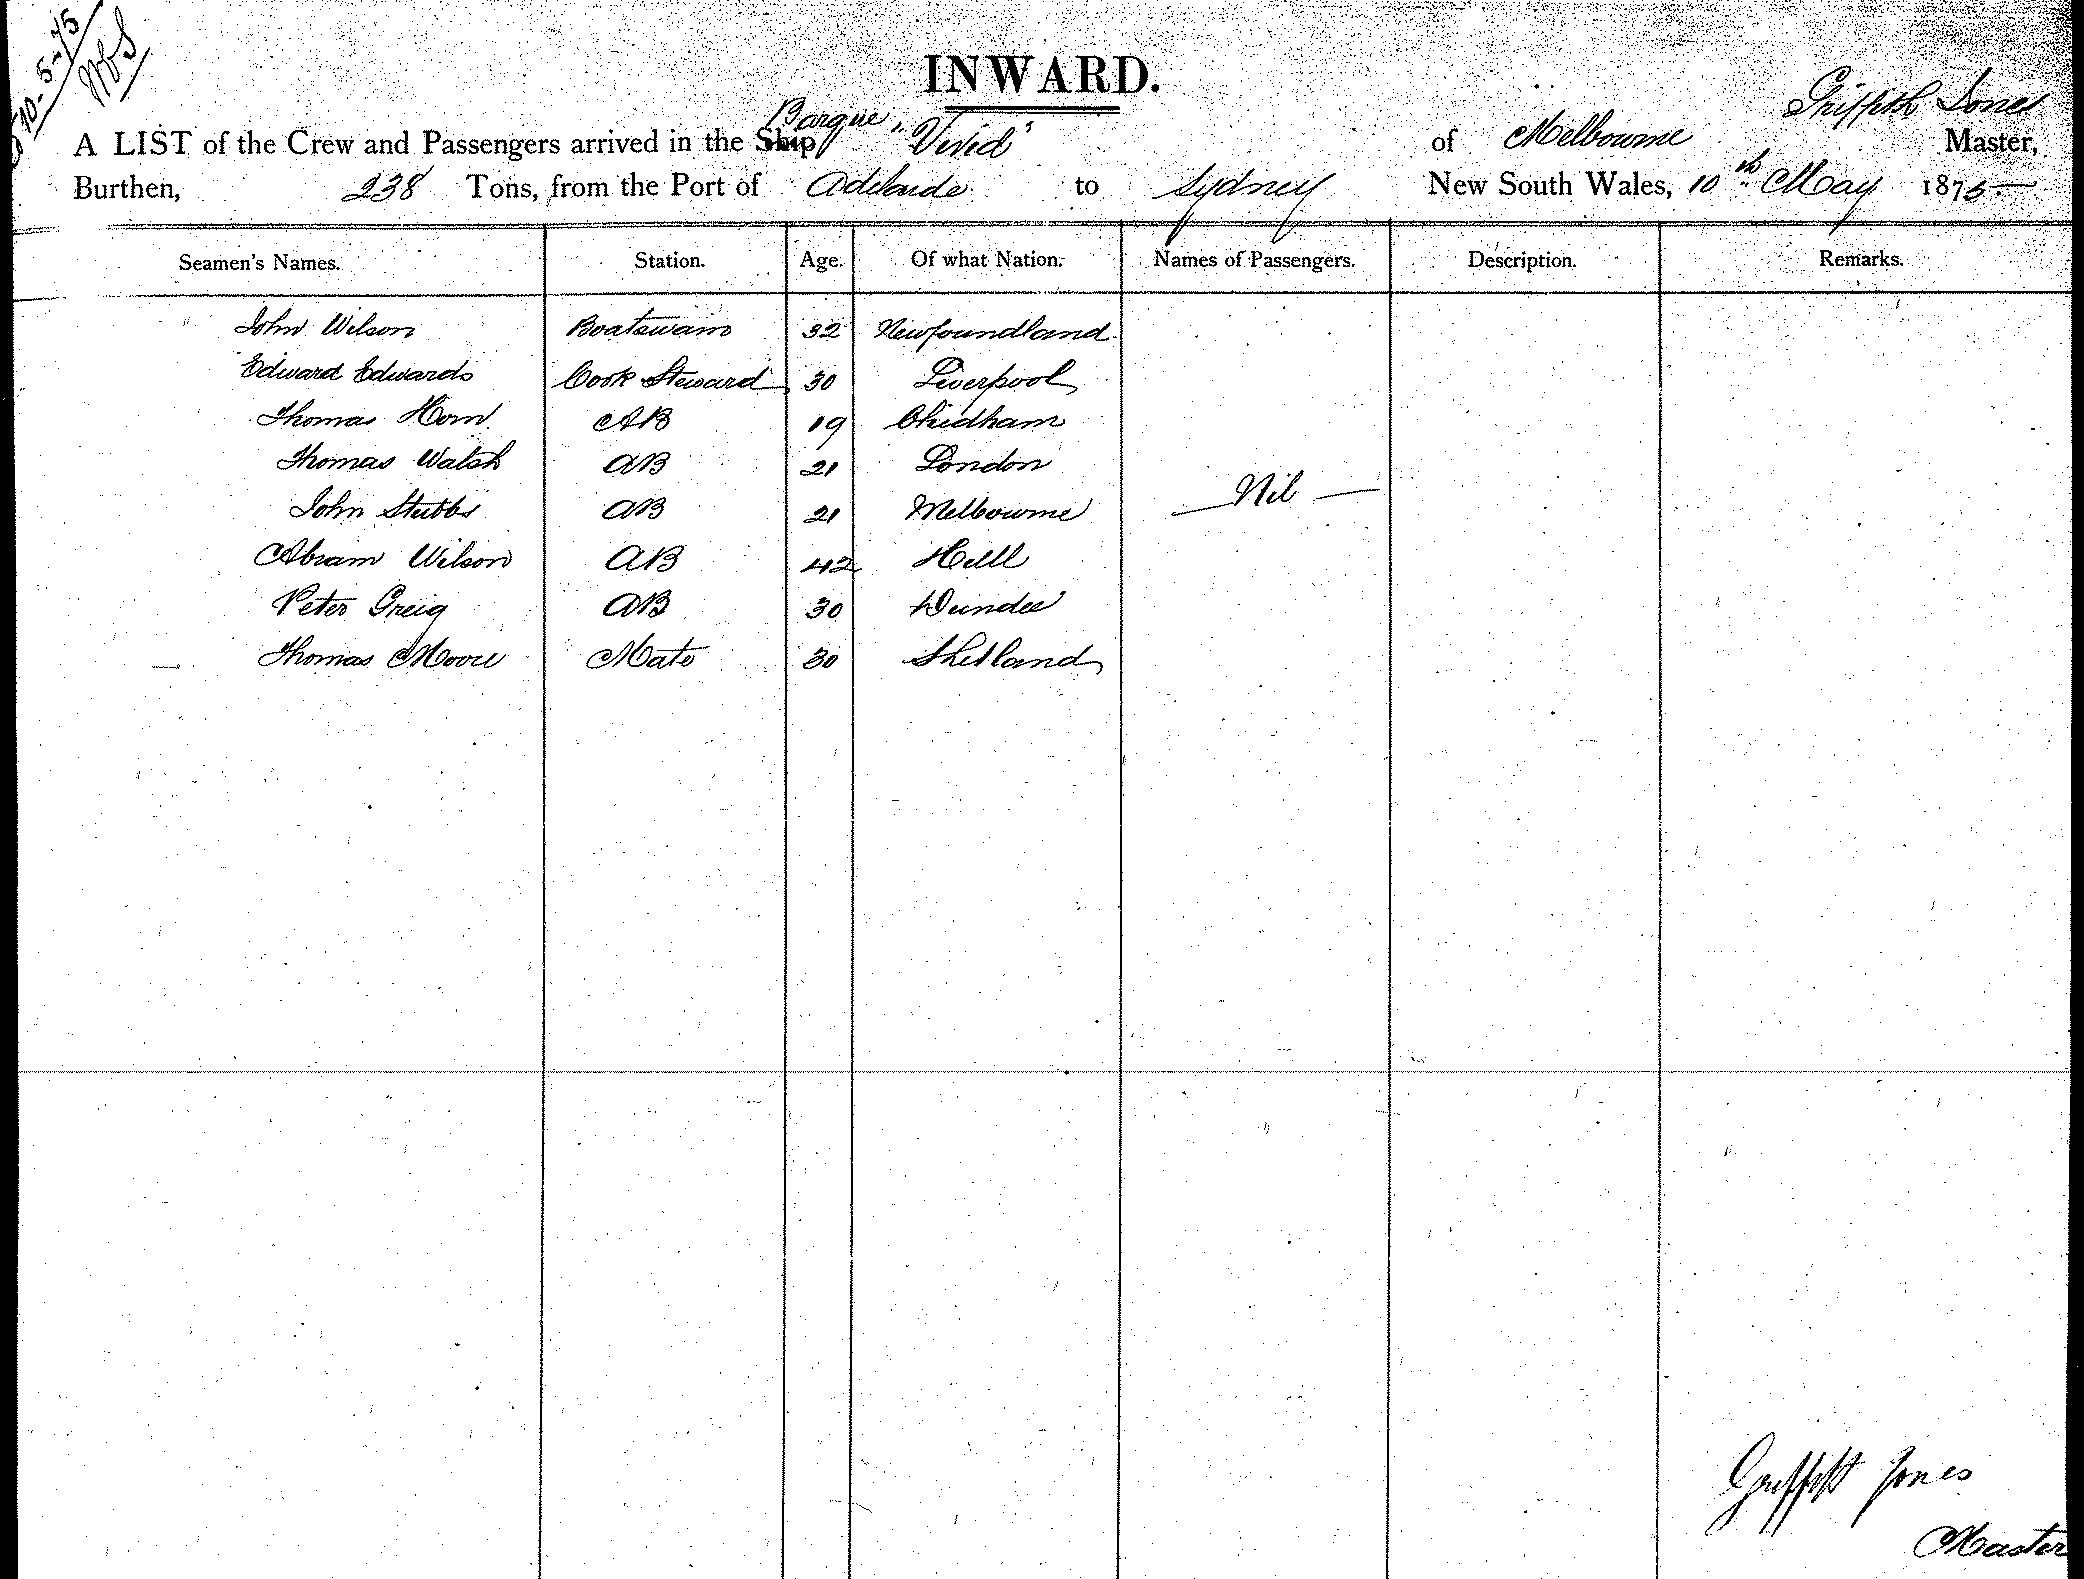 10-5-75
INWARD.
A LIST of the Crew and Passengers arrived in the Ship Barque "Vivid" of Melbourne Griffith Jones Master,
Burthen, 238 Tons, from the Port of Adelaide to Sydney New South Wales, 10th May 1875
Seamen's Names. Station. Age. Of what Nation. Names of Passengers. Description. Remarks.
John Wilson Boatswain 32 Newfoundland
Edward Edwards Cook Steward 30 Liverpool
Thomas Horn AB 19 Chidham
Thomas Walsh AB 21 London
Nil
John Stubbs AB 21 Melbourne
Abram Wilson AB 42 Hull
Peter Greig AB 30 Dundee
Thomas Moore Mate 30 Shetland
Griffith Jones
Master